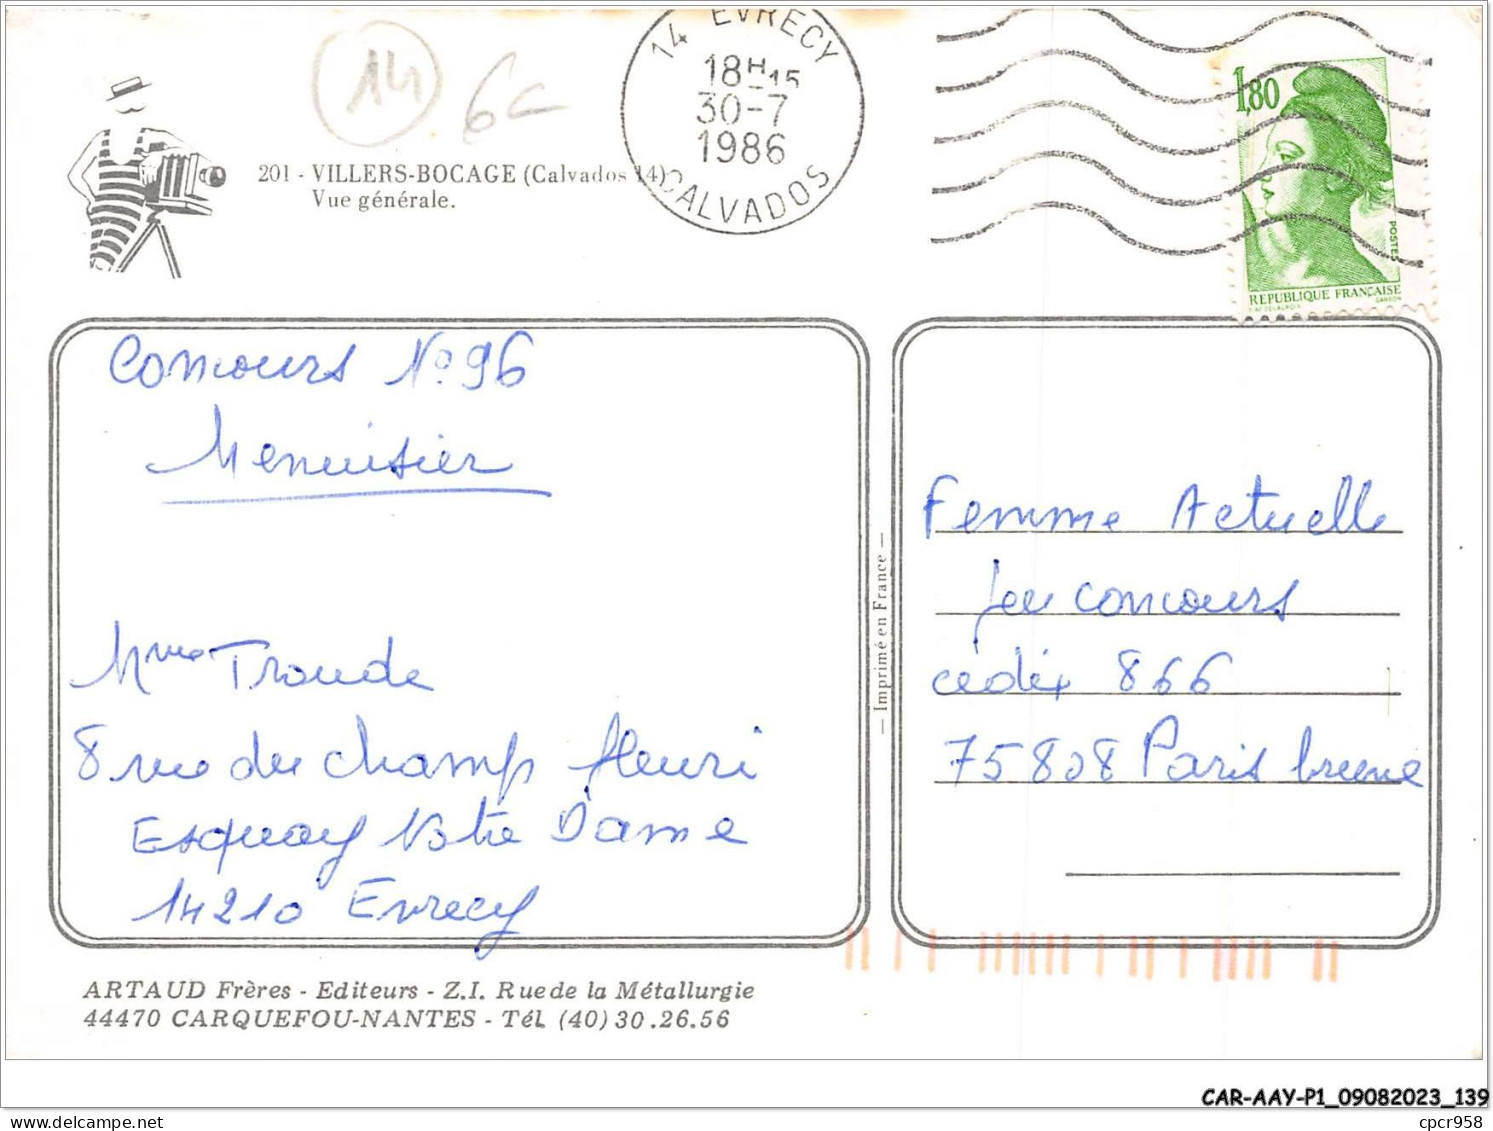 14
6c
201 - VILLERS-BOCAGE (Calvados 14)
Vue générale.
14 EVRECY
18H15
30-7
1986
CALVADOS
1,80
POSTES
REPUBLIQUE FRANÇAISE
Concours No 96
Menuisier
Mme Troude
8 rue du champ fleuri
Esquay Notre Dame
14210 Evrecy
— Imprimé en France —
Femme Actuelle
Jeu concours
cédex 866
75808 Paris brune
ARTAUD Frères - Editeurs - Z.I. Rue de la Métallurgie
44470 CARQUEFOU-NANTES - Tél. (40) 30.26.56
CAR-AAY-P1_09082023_139
delcampe.net
cpcr958